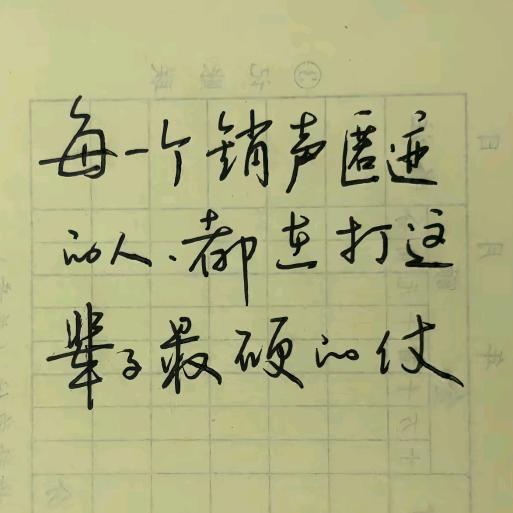 每一个销声匿迹
的人.都在打这
辈子最硬的仗